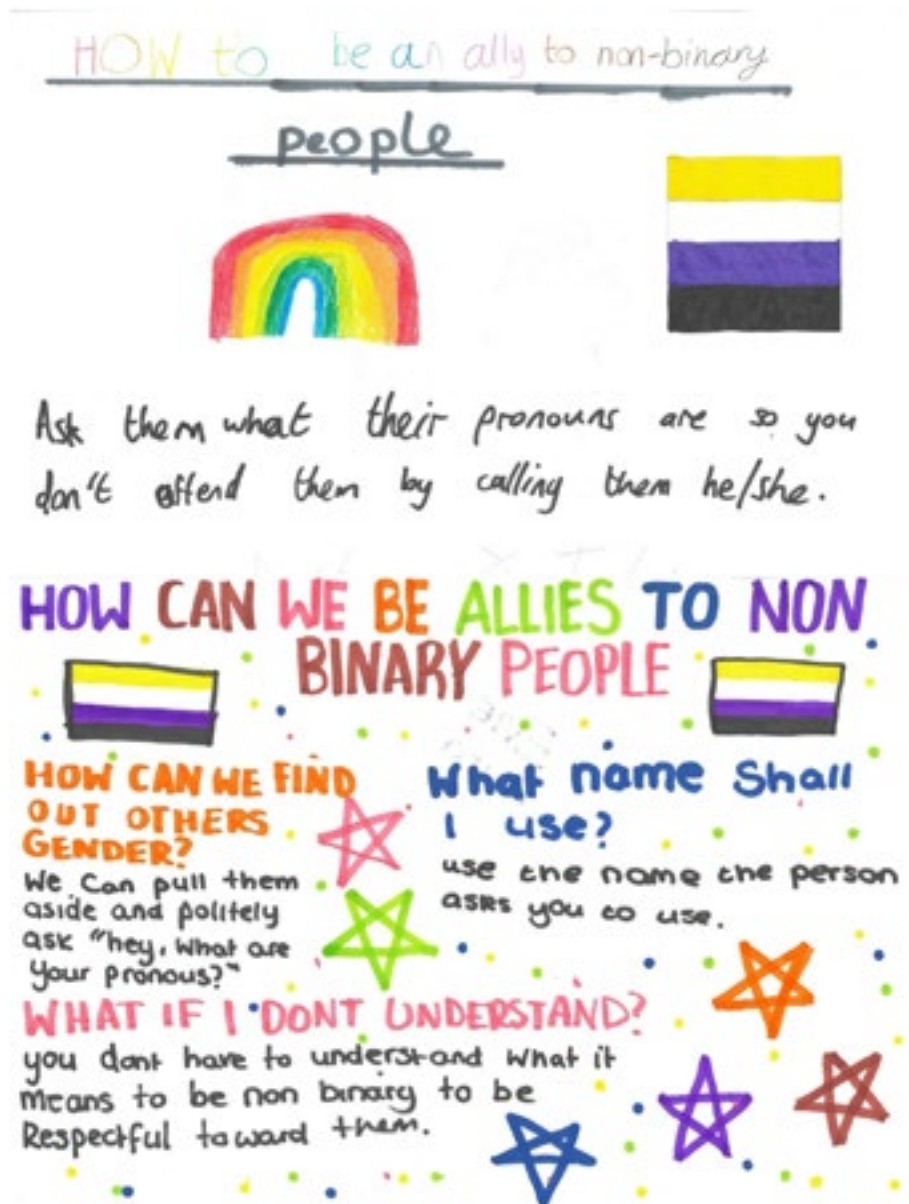 HOW to be an ally to non-binary
people
Ask them what their pronouns are so you
don't offend them by calling them he/she.
HOW CAN WE BE ALLIES TO NON
BINARY PEOPLE
HOW CAN WE FIND
OUT OTHERS
GENDER?
We can pull them
aside and politely
ask "hey, what are
your pronous?"
What name Shall
I use?
use the name the person
asks you to use.
WHAT IF I DONT UNDERSTAND?
you dont have to understand what it
means to be non binary to be
Respectful toward them.